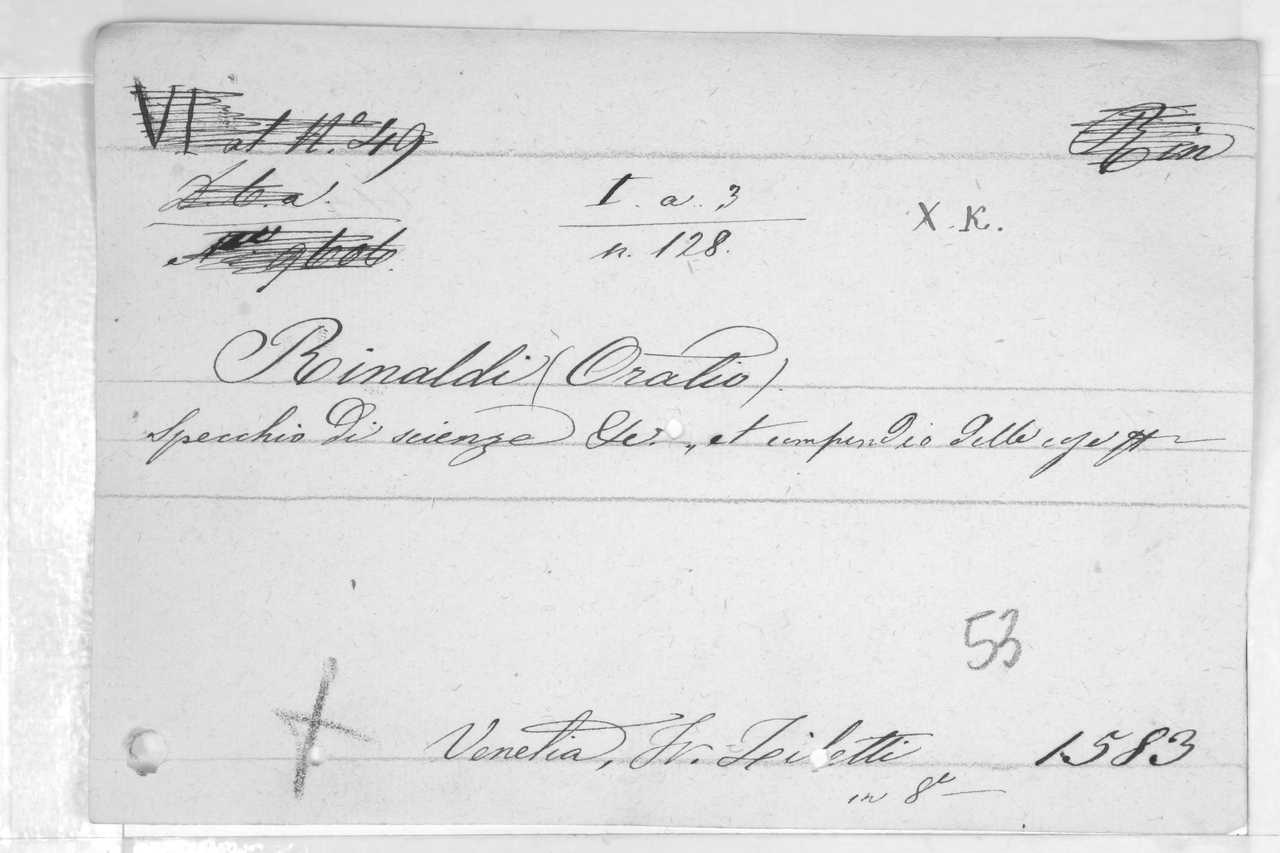 VI at N.º 49
Rin
I. a. 3
n. 128.
X. K.
Rinaldi (Oratio).
Specchio di scienze &c. „ et compendio delle cose
53
Venetia, Fr. Ziletti 1583
in 8º